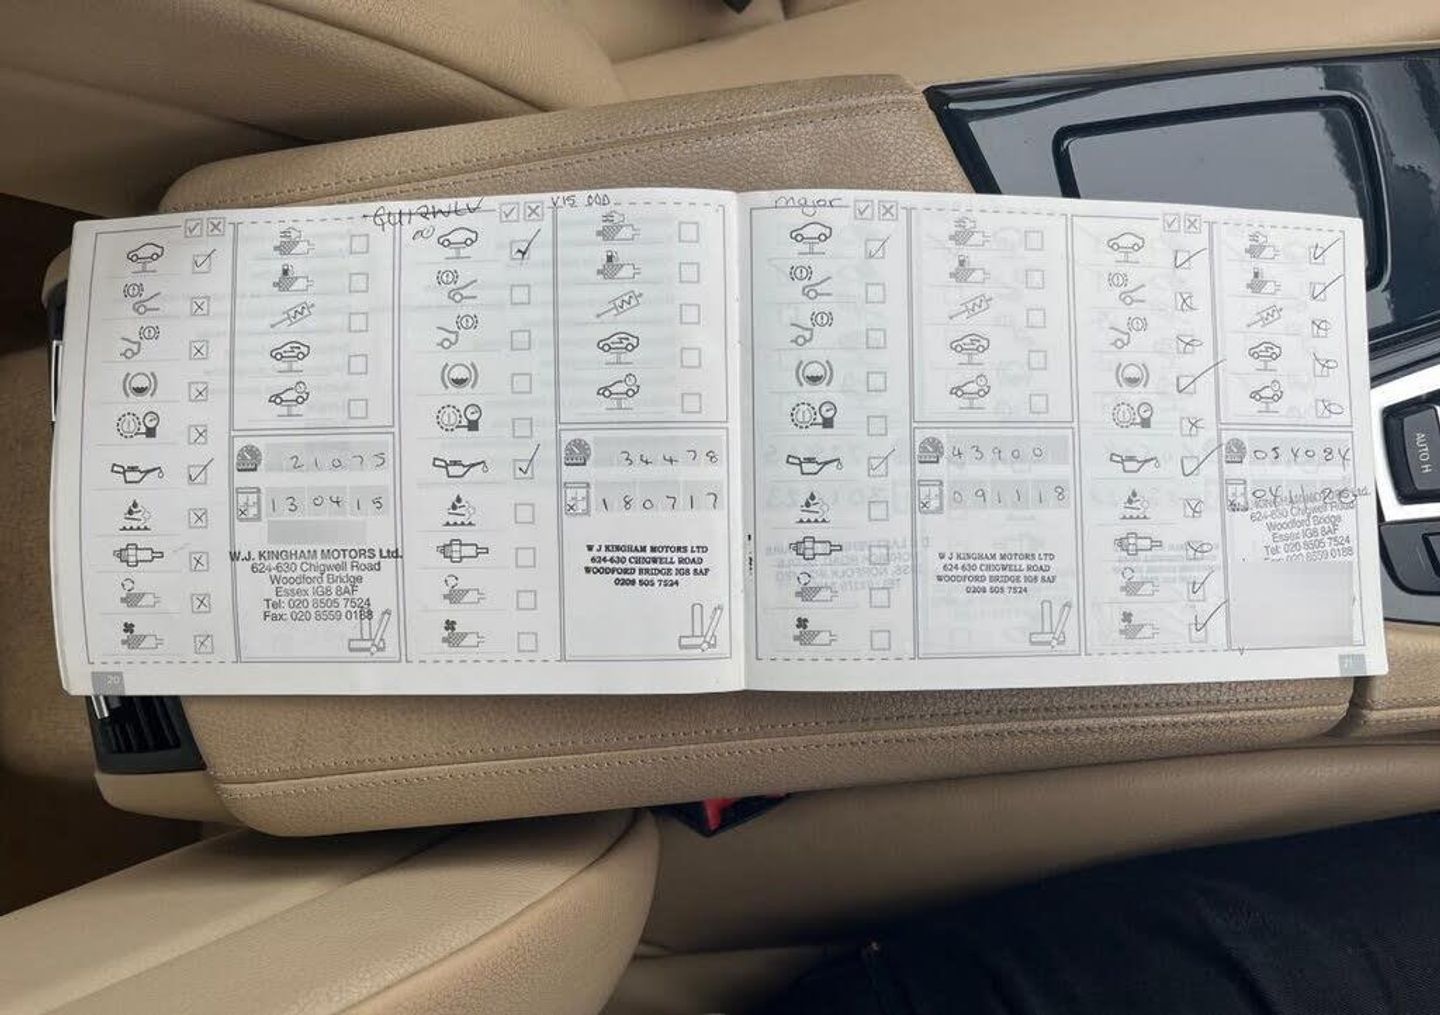 VIS 000
major
21075
130415
W.J. KINGHAM MOTORS Ltd.
624-630 Chigwell Road
Woodford Bridge
Essex IG8 8AF
Tel: 020 8505 7524
Fax: 020 8559 0188
34478
180717
W J KINGHAM MOTORS LTD
624-630 CHIGWELL ROAD
WOODFORD BRIDGE IG8 8AF
0208 505 7524
43900
091118
W J KINGHAM MOTORS LTD
624-630 CHIGWELL ROAD
WOODFORD BRIDGE IG8 8AF
0208 505 7524
054084
KINGHAM MOTORS Ltd.
624-630 Chigwell Road
Woodford Bridge
Essex IG8 8AF
Tel: 020 8505 7524
Fax: 020 8559 0188
20
21
AUTO H